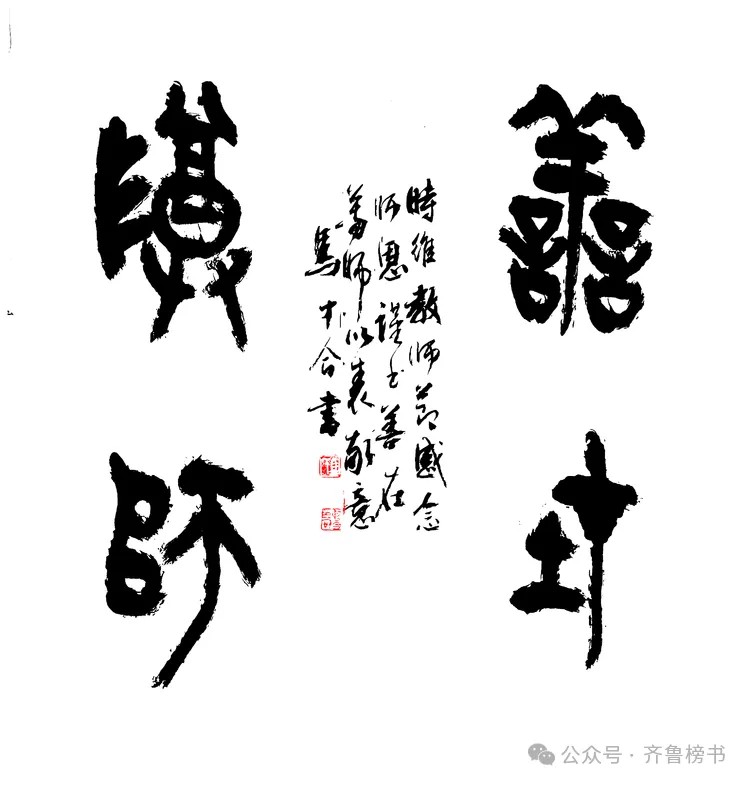 善在
時維教師節感念
师恩谨书善在
尊师以表敬意
馬合書
尊師
公众号·齐鲁榜书